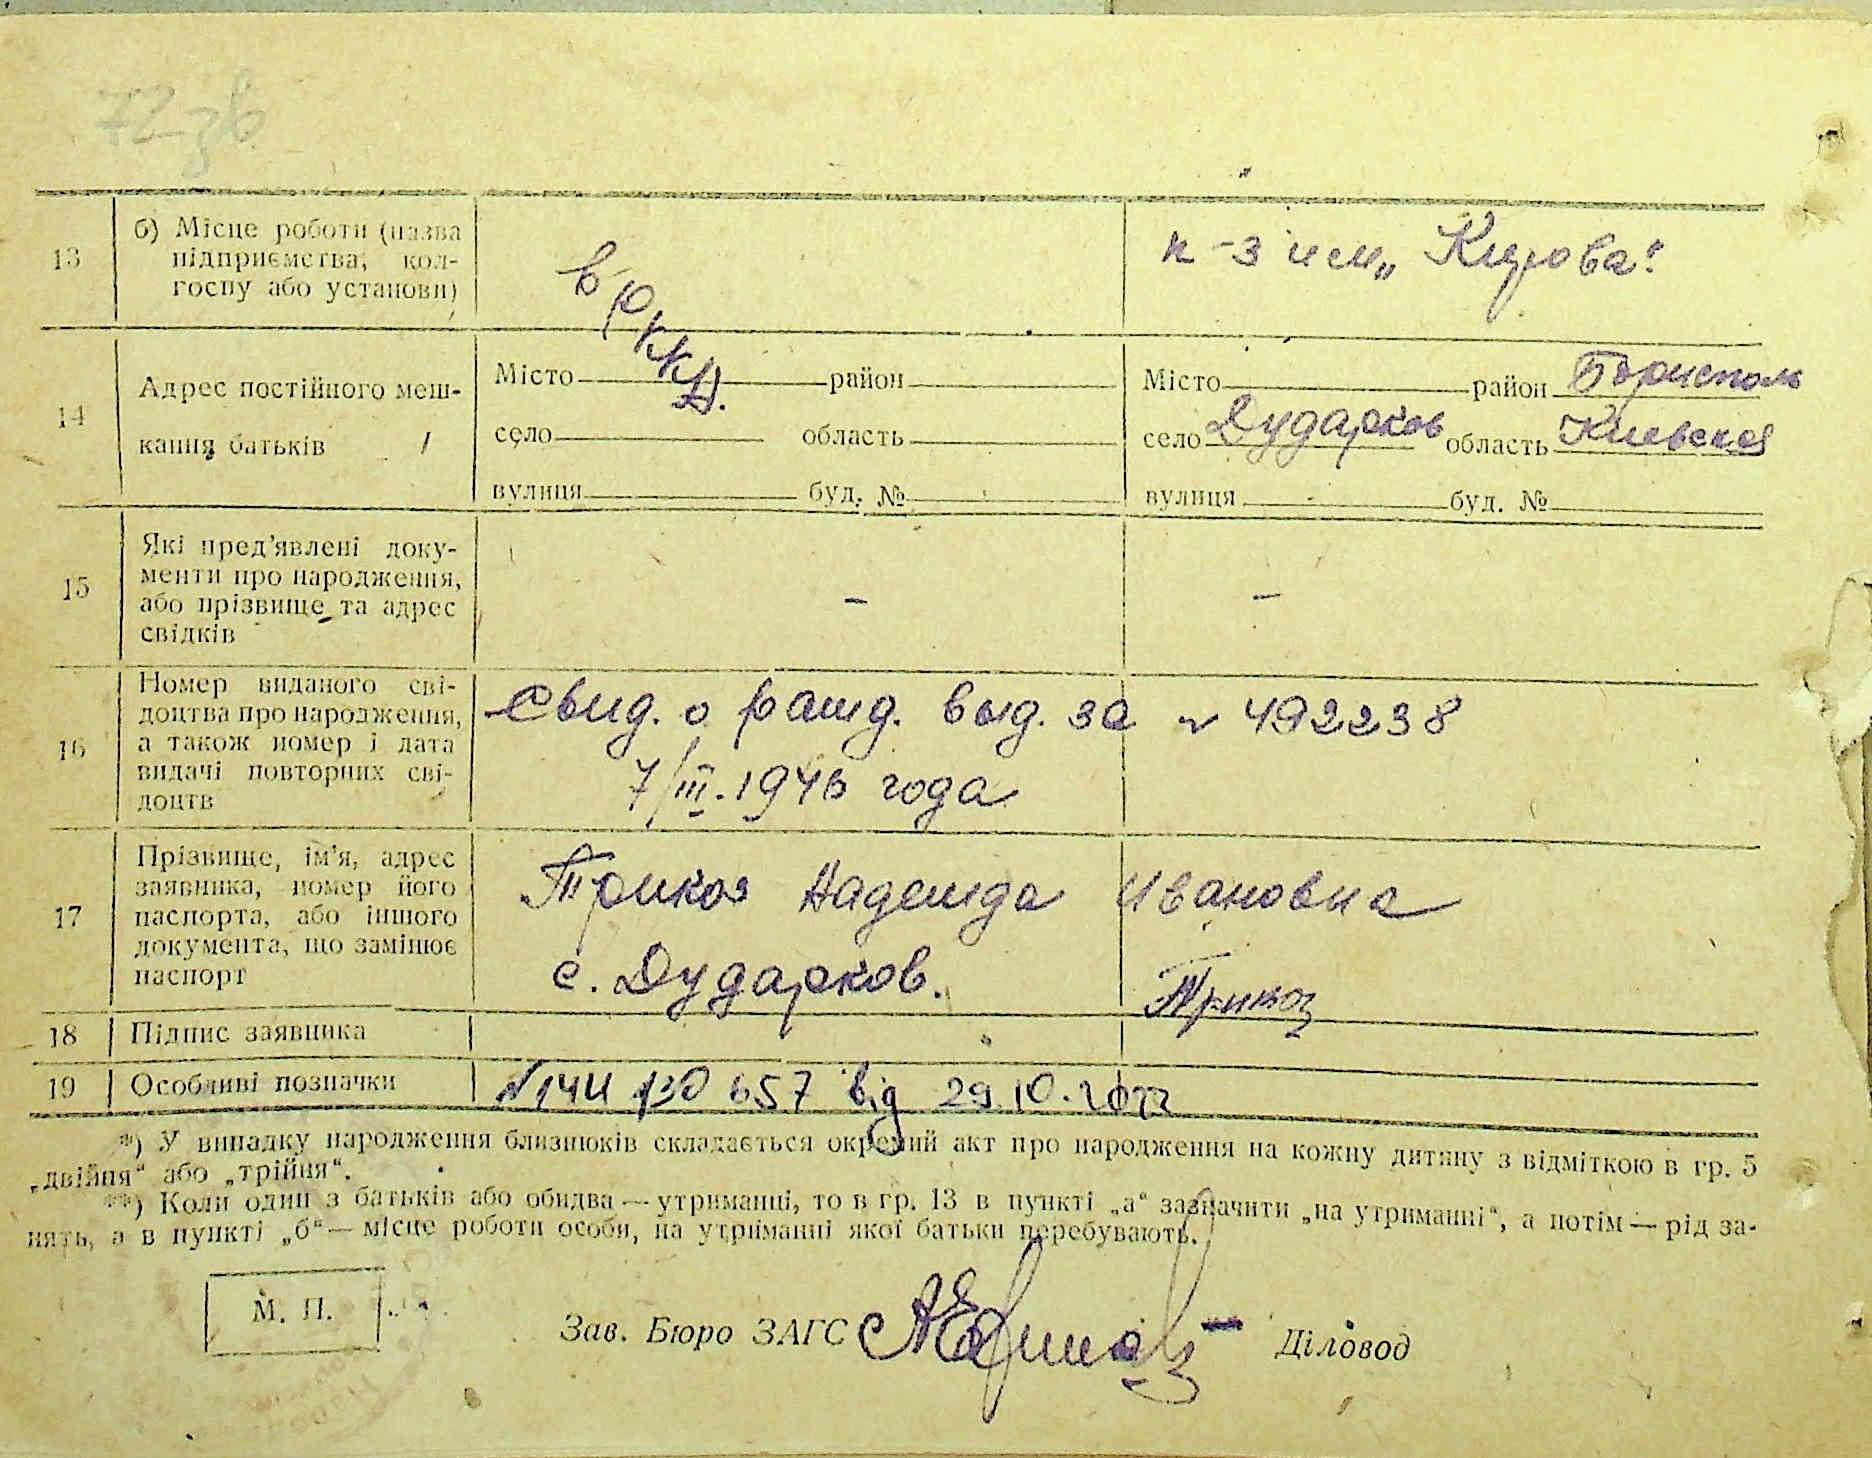 72 зв
13
б) Місце роботи (назва
підприємства, кол-
госпу або установи)
в РККА.
к-з им „Кирова“
14
Адрес постійного меш-
кання батьків
Місто район
село область
вулиця буд. №
Місто район Борисполь
село Дударков область Киевская
вулиця буд. №
15
Які пред’явлені доку-
менти про народження,
або прізвище та адрес
свідків
– –
16
Номер виданого сві-
доцтва про народження,
а також номер і дата
видачі повторних сві-
доцтв
Свид. о рожд. выд. за № 492238
7/III.1946 года
17
Прізвище, ім’я, адрес
заявника, номер його
паспорта, або іншого
документа, що замінює
паспорт
Трикоз Надежда Ивановна
с. Дударков.
18 Підпис заявника
Трикоз
19 Особливі позначки
№ 144 130 657 від 29.10.2022
*) У випадку народження близнюків складається окремий акт про народження на кожну дитину з відміткою в гр. 5
„двійня“ або „трійня“.
**) Коли один з батьків або обидва — утриманці, то в гр. 13 в пункті „а“ зазначити „на утриманні“, а потім — рід за-
нять, а в пункті „б“ — місце роботи особи, на утриманні якої батьки перебувають.
М. П.
Зав. Бюро ЗАГС Діловод